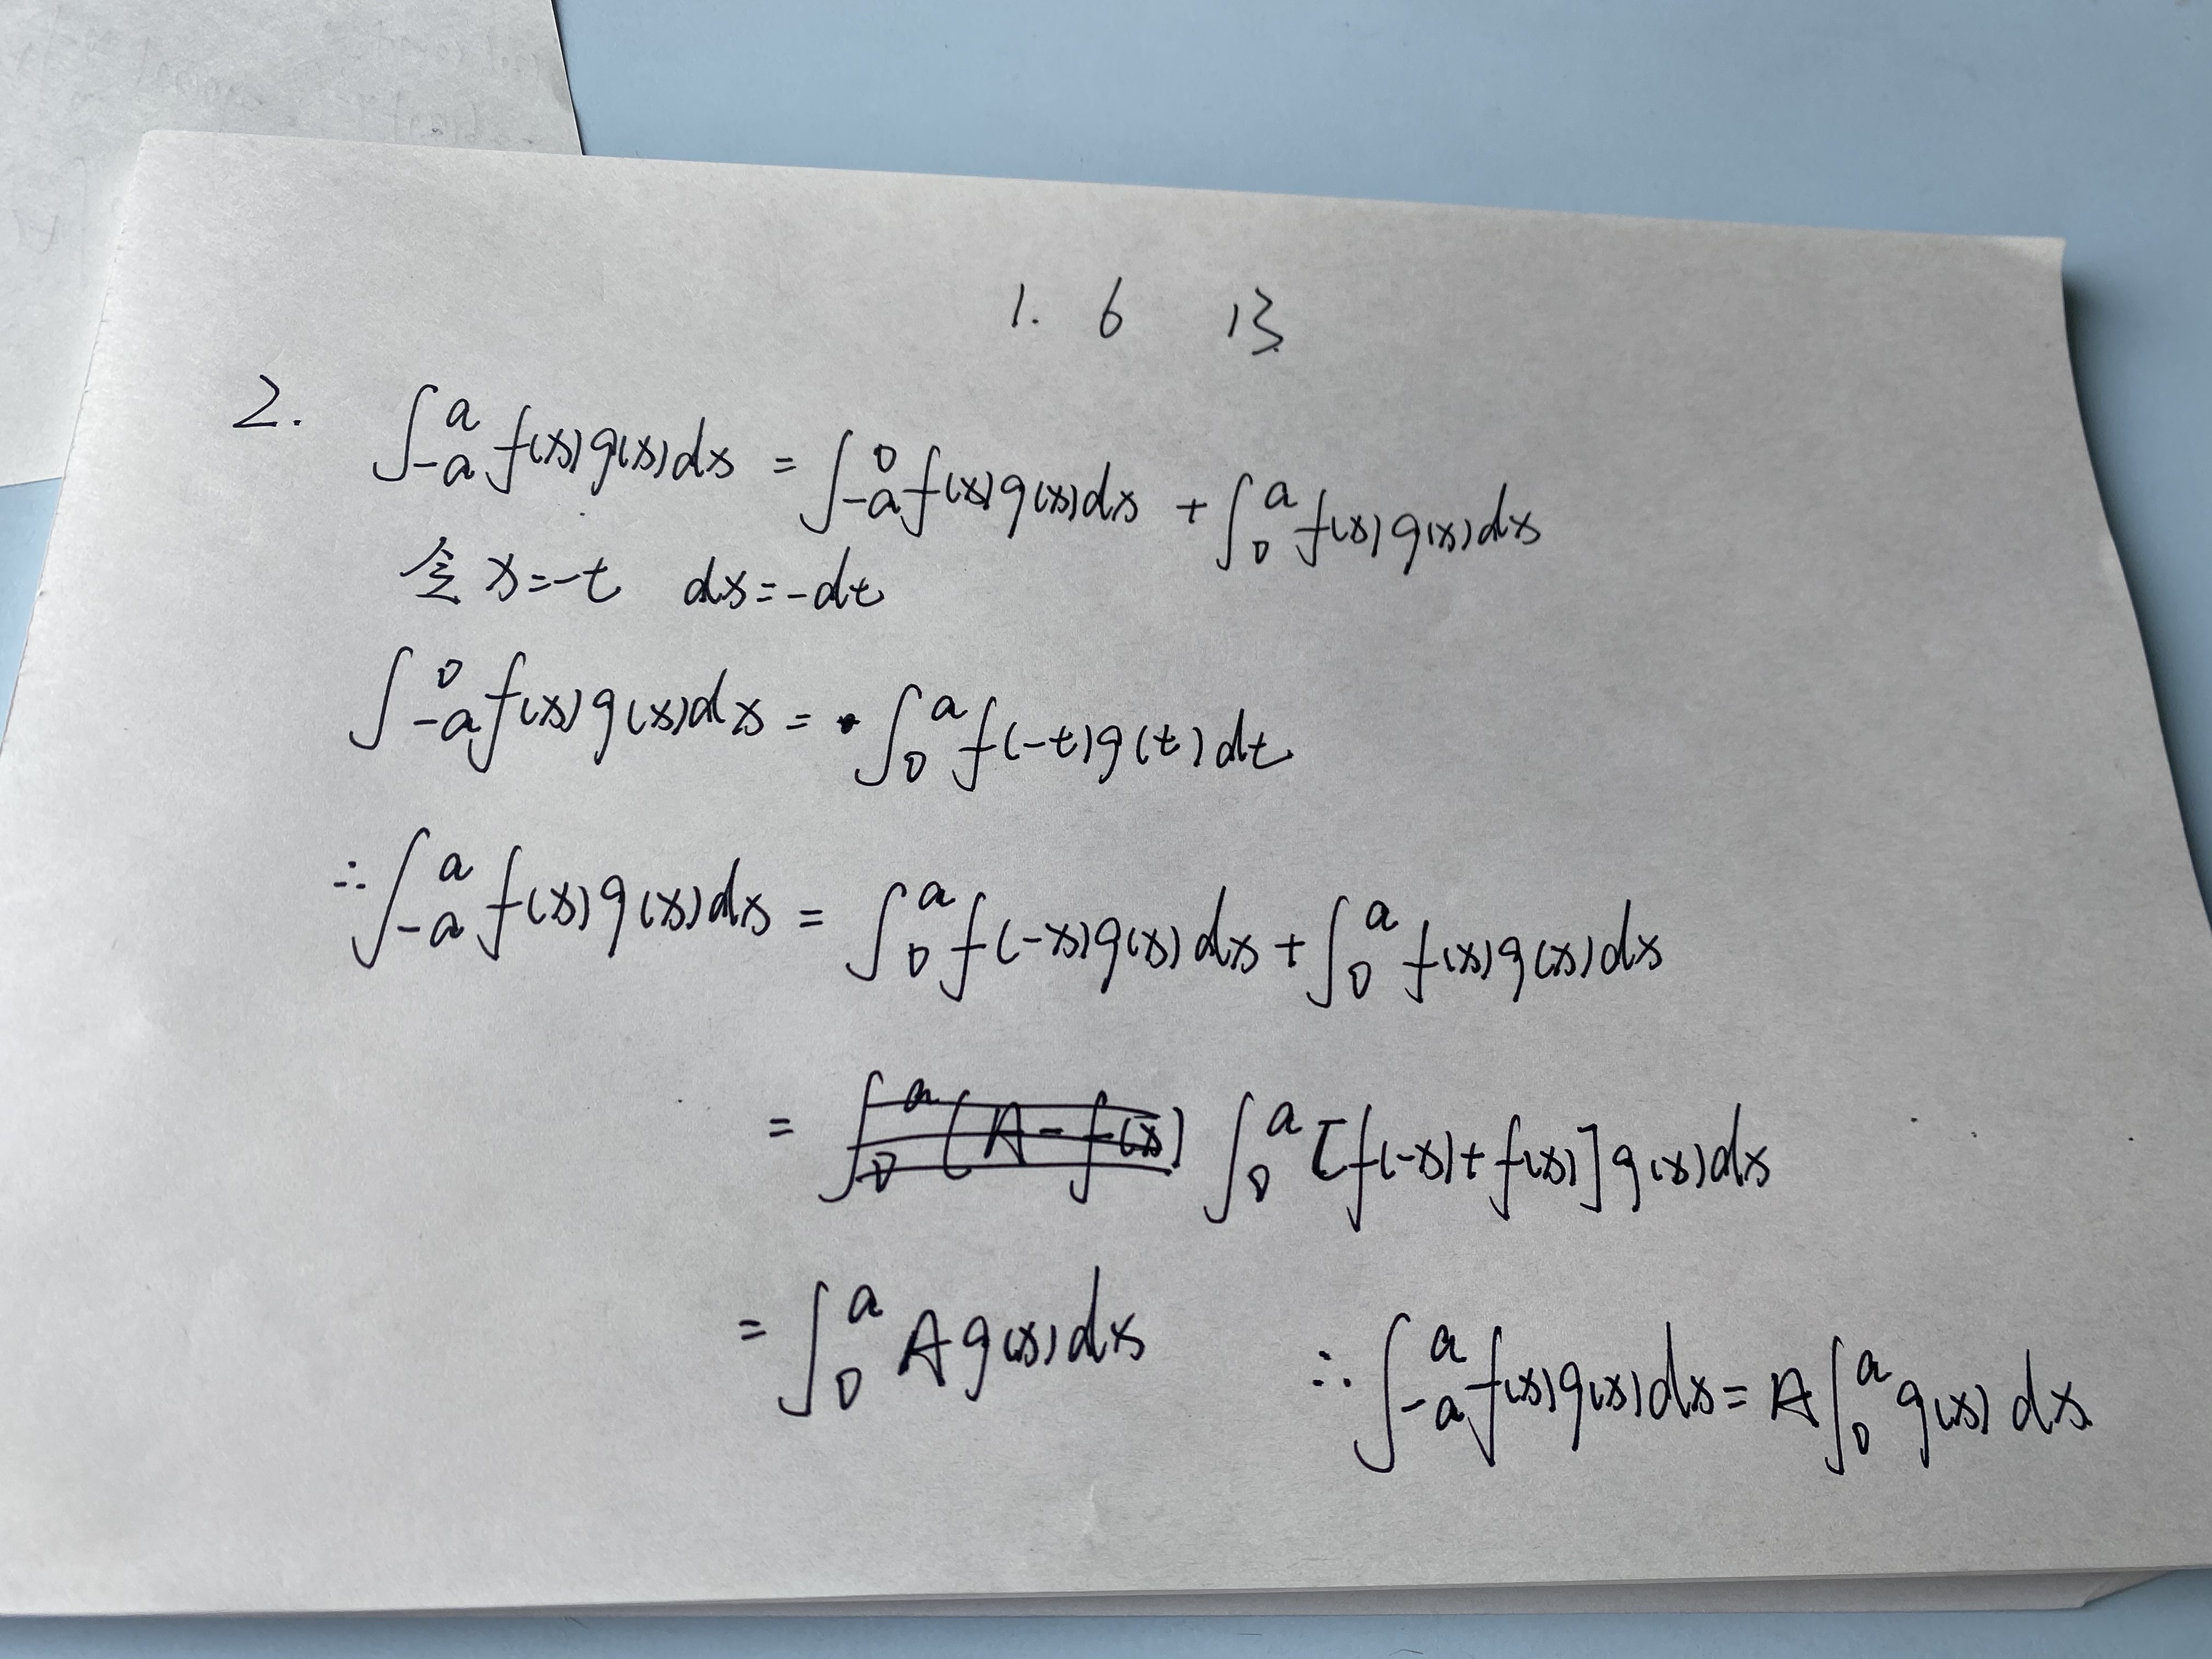 1. 6 13
2. ∫_{-a}^{a} f(x)g(x)dx = ∫_{-a}^{0} f(x)g(x)dx + ∫_{0}^{a} f(x)g(x)dx
令 x=-t dx=-dt
∫_{-a}^{0} f(x)g(x)dx = ∫_{0}^{a} f(-t)g(t)dt
∴ ∫_{-a}^{a} f(x)g(x)dx = ∫_{0}^{a} f(-x)g(x)dx + ∫_{0}^{a} f(x)g(x)dx
= ∫_{0}^{a} [f(-x)+f(x)]g(x)dx
= ∫_{0}^{a} Ag(x)dx ∴ ∫_{-a}^{a} f(x)g(x)dx = A∫_{0}^{a} g(x)dx